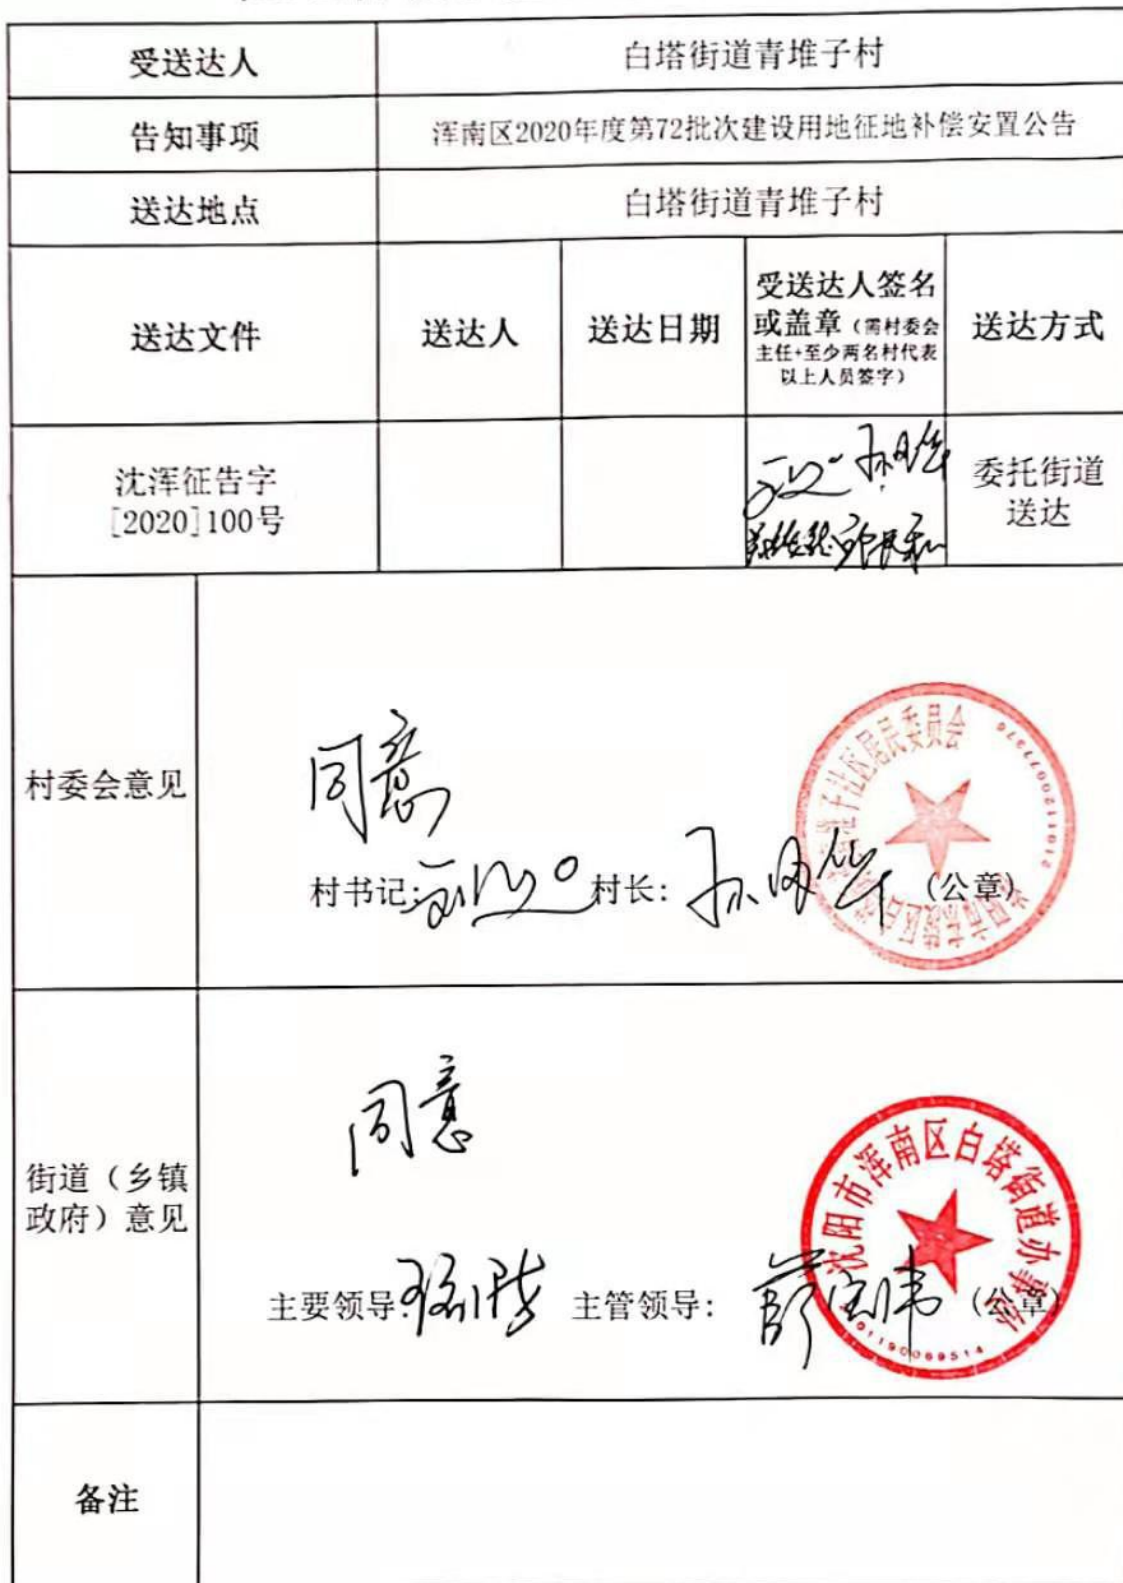 受送达人
白塔街道青堆子村
告知事项
浑南区2020年度第72批次建设用地征地补偿安置公告
送达地点
白塔街道青堆子村
送达文件
送达人
送达日期
受送达人签名
或盖章（需村委会
主任+至少两名村代表
以上人员签字）
送达方式
沈浑征告字
[2020]100号
孙月华
委托街道
送达
村委会意见
同意
村书记:
村长: 孙月华 (公章)
社区居民委员会
街道（乡镇
政府）意见
同意
主要领导:
主管领导: (公章)
沈阳市浑南区白塔街道办事处
备注